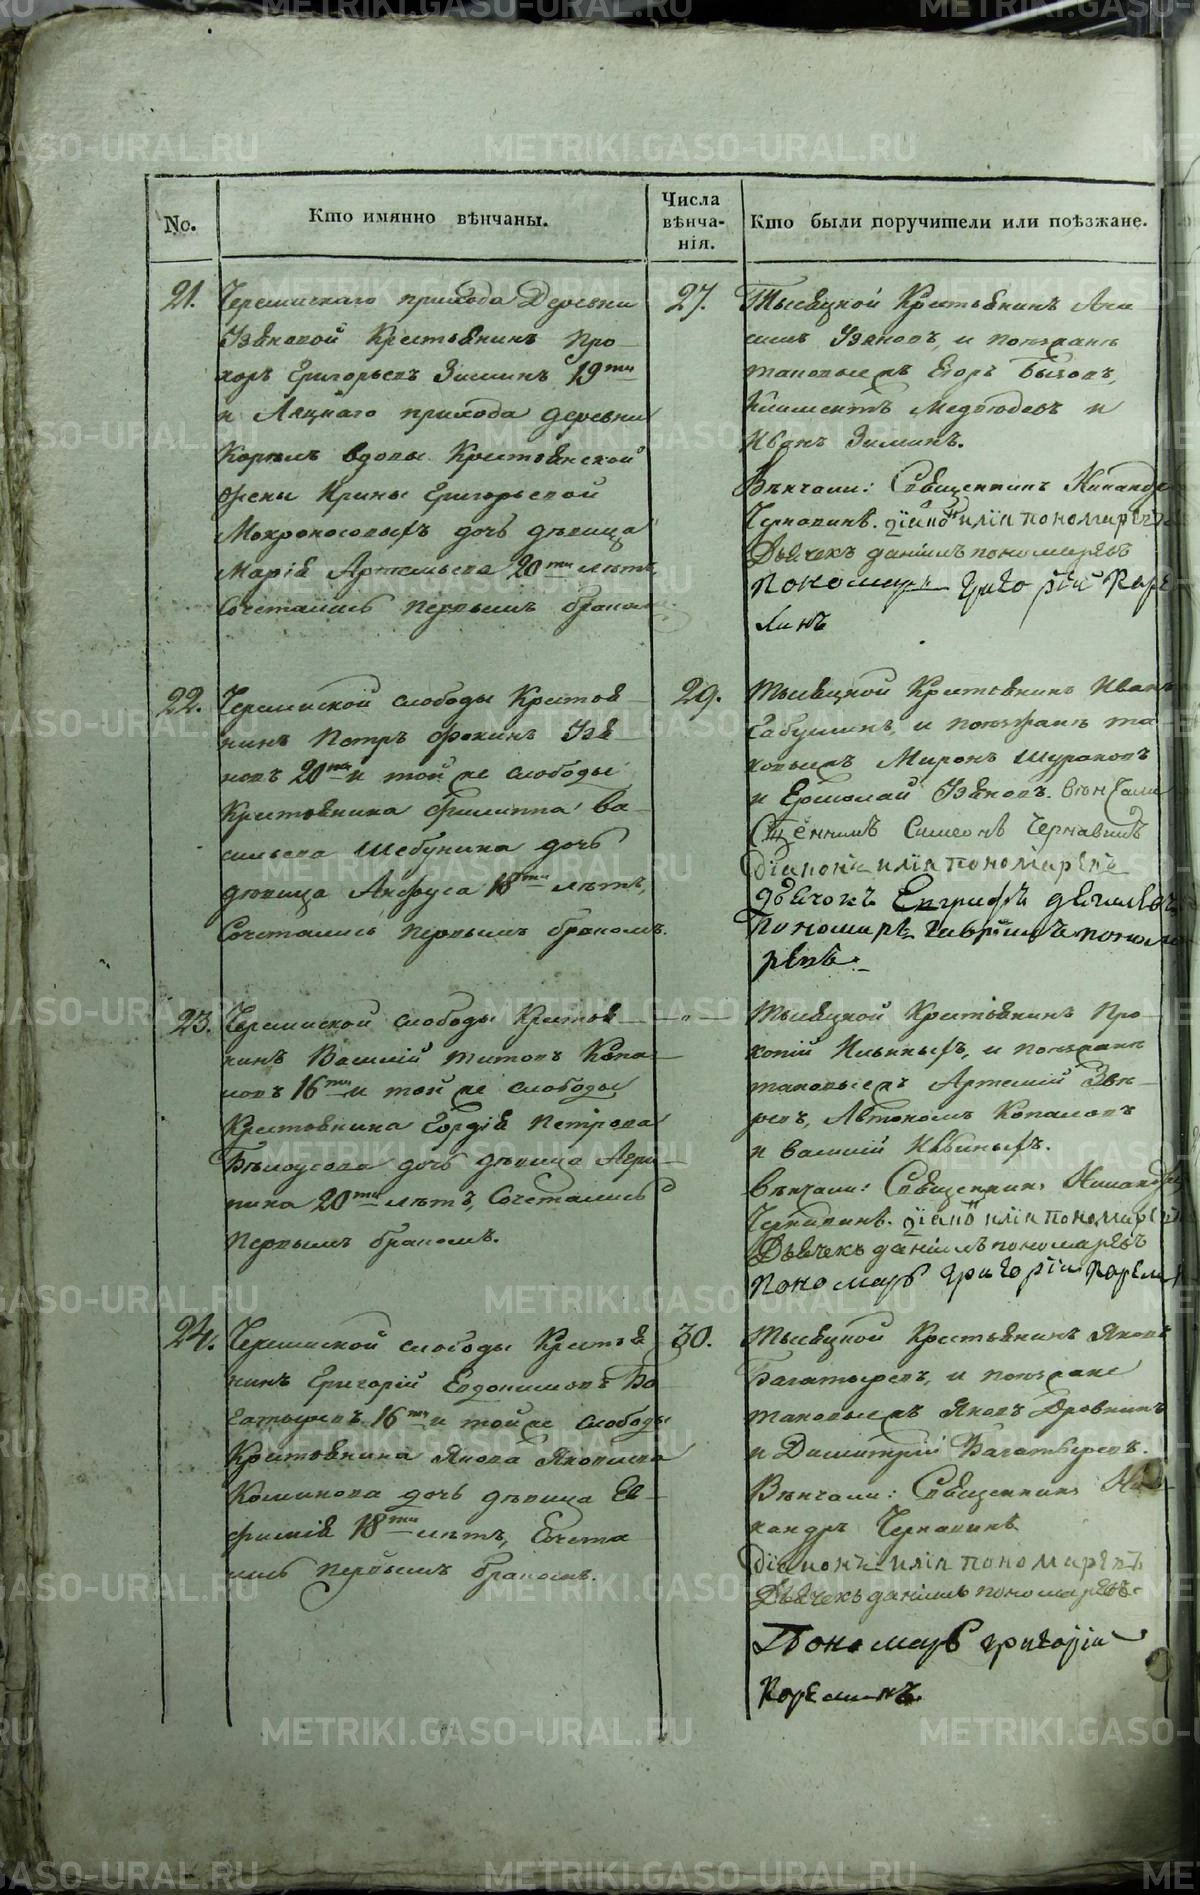 No.
Кто имянно вѣнчаны.
Числа
вѣнча-
нія.
Кто были поручители или поѣзжане.
21.
прихода Деревни
Крестьянинъ Про-
хоръ Григорьевъ Зиминъ 19ти
и прихода деревни
вдовы Крестьянской
жены Ирины Григорьевой
Мокроносовыхъ дочь дѣвица
Марія Артемьева 20ти лѣтъ,
Сочетались первымъ бракомъ.
27.
Тысяцкой Крестьянинъ
и поѣзжанъ
таковые жъ Егоръ Быковъ,
Климентъ Медвѣдевъ и
Иванъ Зиминъ.
Вѣнчали: Священникъ
Чернавинъ. діаконъ илія пономаревъ
Дьячекъ даніилъ пономаревъ
пономарь григорій Каре
линъ
22.
слободы Крестья-
нинъ Петръ Фокинъ
20ти и той же слободы
Крестьянина Филиппа Ва-
сильева Шебунина дочь
дѣвица Анфуса 18ти лѣтъ,
Сочетались первымъ бракомъ.
29.
Тысяцкой Крестьянинъ Иванъ
и поѣзжанъ та-
ковые жъ Миронъ Шураковъ
и Ермолай Вѣнчали
Симеонъ Чернавинъ
діаконъ илія пономаревъ
дьячокъ Евграфъ
пономарь гавріилъ понома
ревъ.
23.
слободы Крестья-
нинъ Василій Титовъ
16ти и той же слободы
Крестьянина Гордія Петрова
Бѣлоусова дочь дѣвица Агри-
пина 20ти лѣтъ, Сочетались
Первымъ бракомъ.
— " —
Тысяцкой Крестьянинъ Про-
копій Ильиныхъ, и поѣзжанъ
таковые жъ Артемій Звѣ-
ревъ, Автономъ
и Василій
Вѣнчали: Священникъ Никандръ
Чернавинъ. діаконъ илія пономаревъ
Дьячекъ даніилъ пономаревъ
Пономарь григорій Карелинъ
24.
слободы Крестья
нинъ Григорій Евдокимовъ Бо
гатыревъ 16ти и той же слободы
Крестьянина Якова Яковлева
дочь дѣвица Ев-
фимія 18ти лѣтъ, Сочета
лись первымъ бракомъ.
30.
Тысяцкой Крестьянинъ Яковъ
Багатыревъ, и поѣзжане
таковые жъ Яковъ
и Димитрій Багатыревъ.
Вѣнчали: Священникъ Ни-
кандръ Чернавинъ
діаконъ илія пономаревъ
Дьячекъ даніилъ пономаревъ
Пономарь григорій
Карелинъ
METRIKI.GASO-URAL.RU